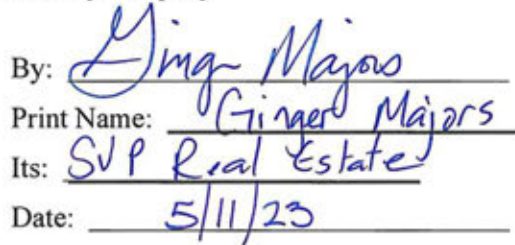 By: Ginger Majors
Print Name: Ginger Majors
Its: SVP Real Estate
Date: 5/11/23